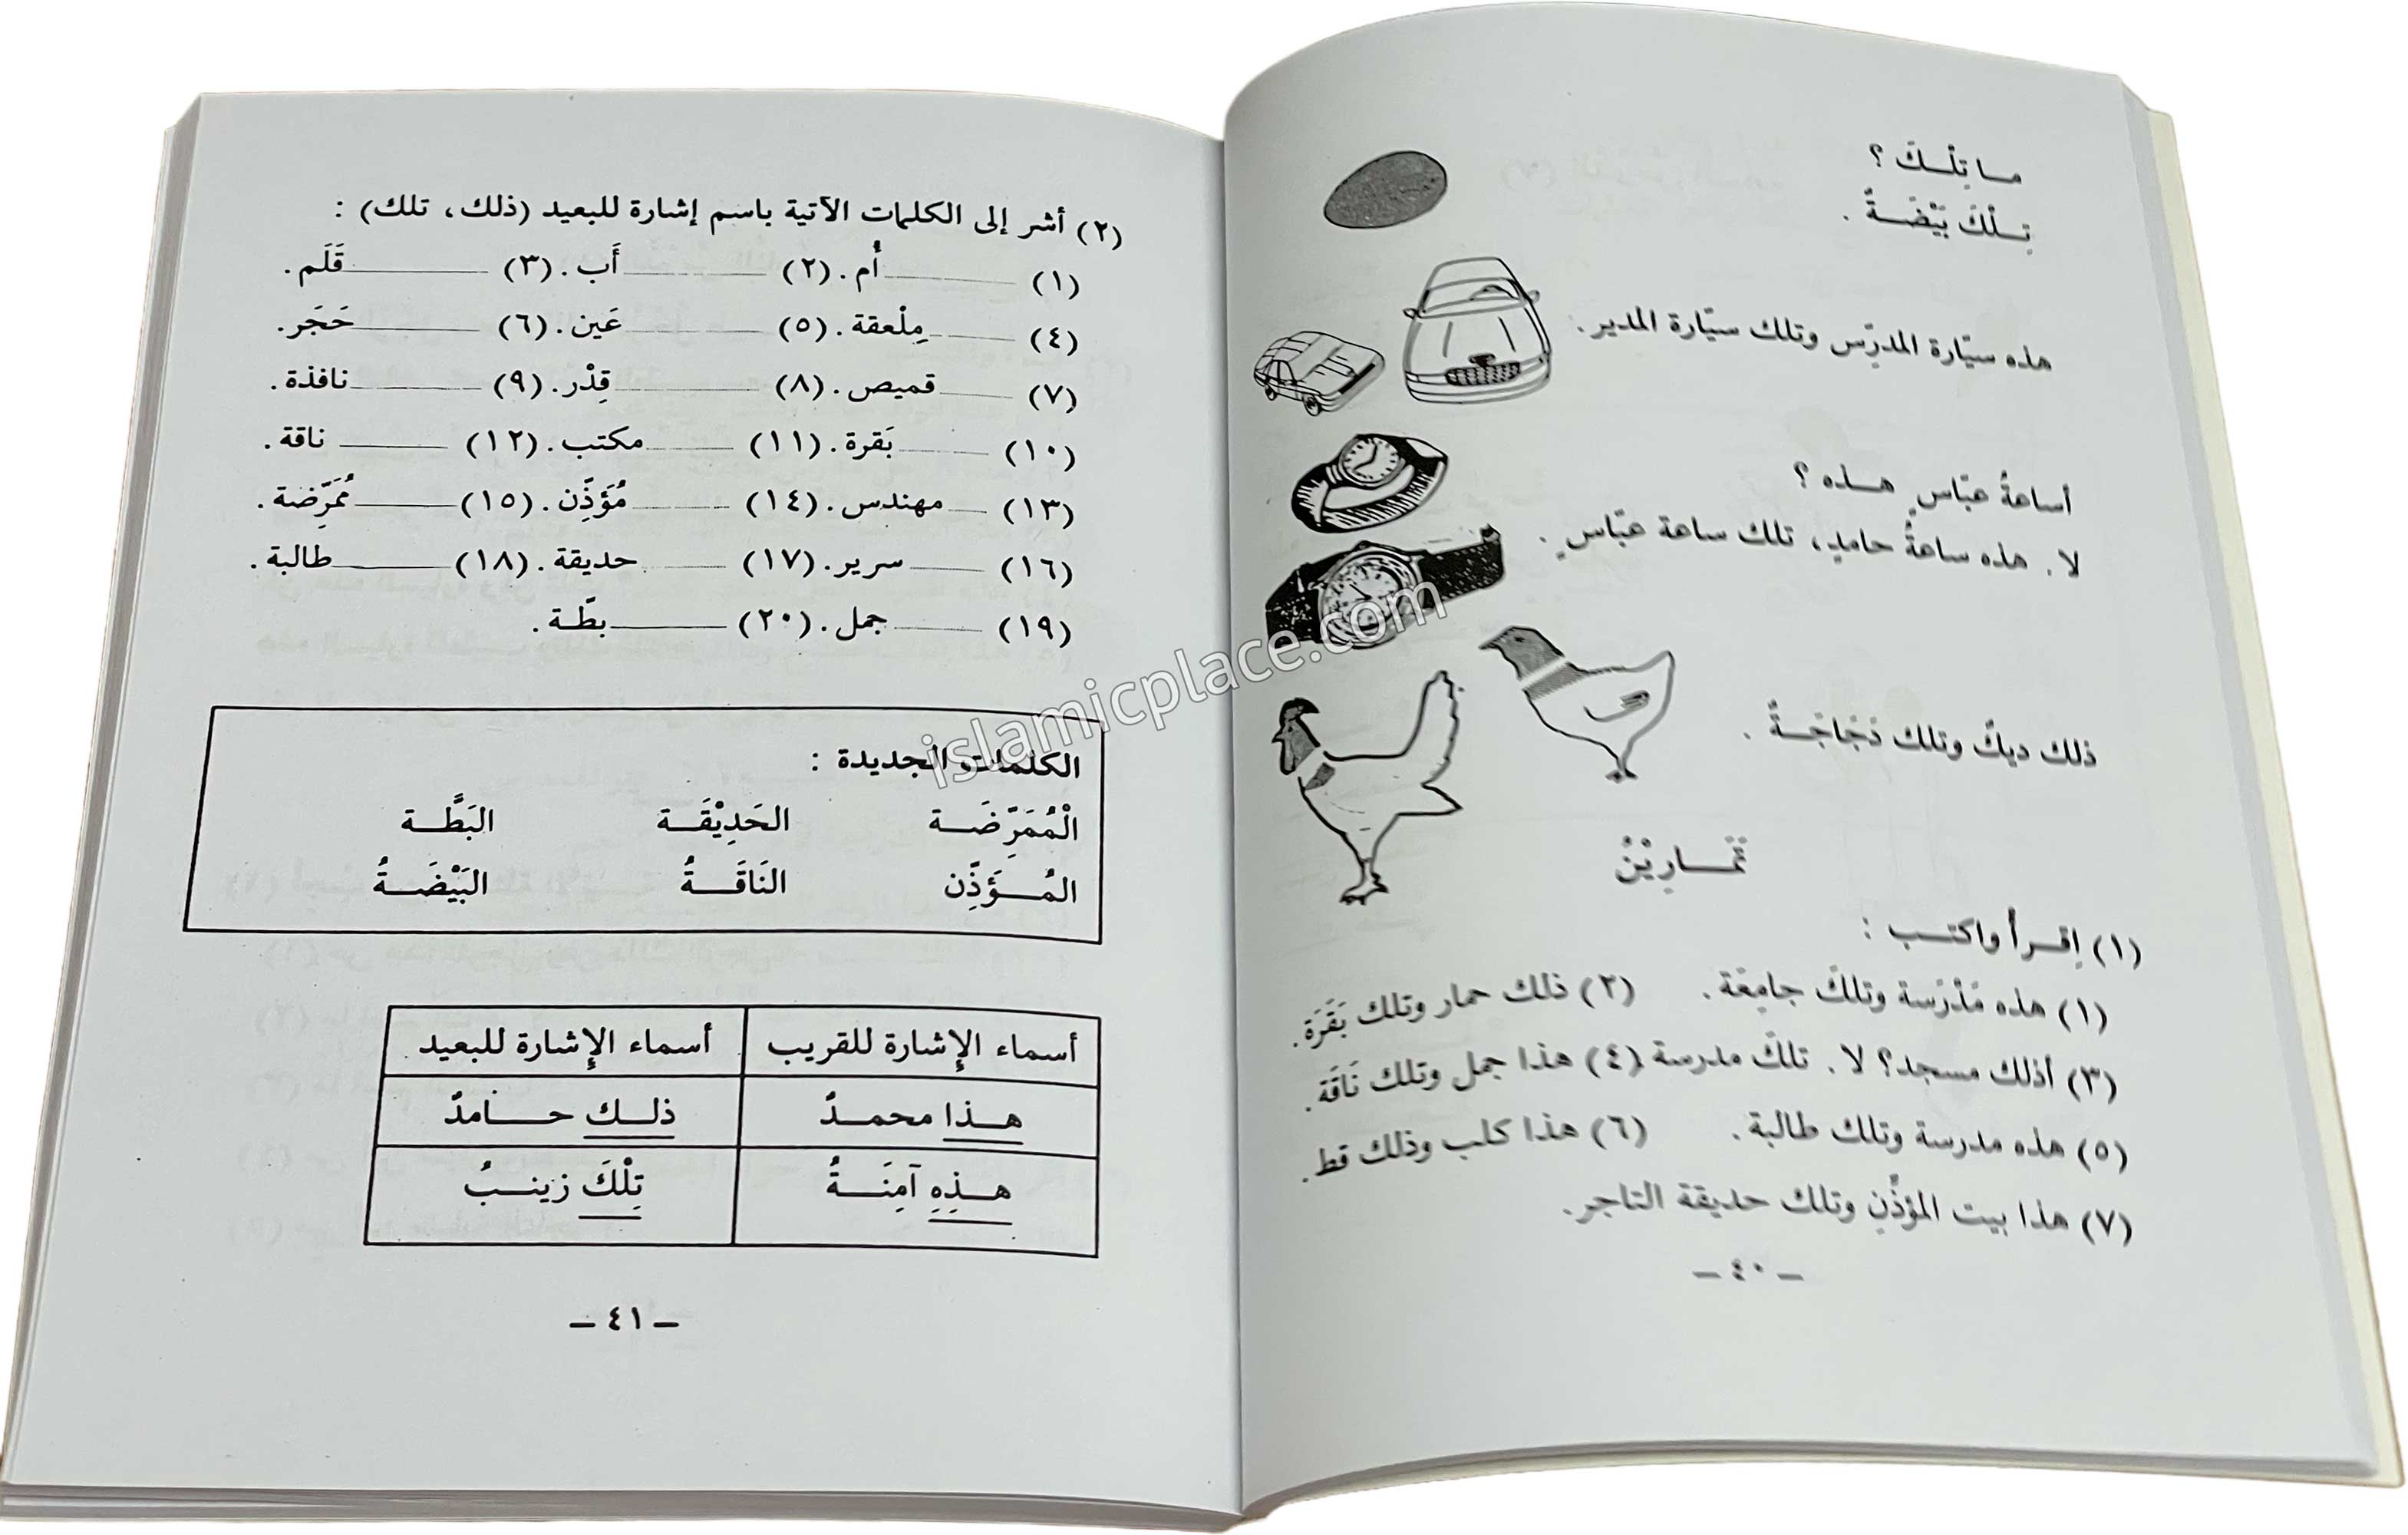 ما تِلْكَ ؟
تِلْكَ بَيْضَةٌ .
هذه سيّارة المدرّس وتلك سيّارة المدير .
أساعةُ عبّاسٍ هذه ؟
لا . هذه ساعةُ حامدٍ، تلك ساعة عبّاسٍ .
ذلك ديكٌ وتلك دَجَاجَةٌ .
تَمَارِيْنُ
(١) اِقرأ واكتب :
(١) هذه مَدْرَسة وتلكَ جامِعَة . (٢) ذلك حمار وتلك بَقَرَة .
(٣) أذلك مسجد؟ لا . تلكَ مدرسة (٤) هذا جمل وتلك نَاقَة .
(٥) هذه مدرسة وتلك طالبة . (٦) هذا كلب وذلك قط .
(٧) هذا بيت المؤذِّنِ وتلك حديقة التاجر .
– ٤٠ –
(٢) أشر إلى الكلمات الآتية باسم إشارة للبعيد (ذلك، تلك) :
(١) ــــــ أُم . (٢) ــــــ أَب . (٣) ــــــ قَلَم .
(٤) ــــــ مِلْعقة . (٥) ــــــ عَين . (٦) ــــــ حَجَر .
(٧) ــــــ قميص . (٨) ــــــ قِدْر . (٩) ــــــ نافذة .
(١٠) ــــــ بَقرة . (١١) ــــــ مكتب . (١٢) ــــــ ناقة .
(١٣) ــــــ مهندس . (١٤) ــــــ مُؤَذِّن . (١٥) ــــــ مُمَرِّضة .
(١٦) ــــــ سرير . (١٧) ــــــ حديقة . (١٨) ــــــ طالبة .
(١٩) ــــــ جمل . (٢٠) ــــــ بطّة .
الكلمات الجديدة :
الْمُمَرِّضَة الحَدِيْقَة البَطَّة
المُؤَذِّن النَاقَةُ البَيْضَةُ
أسماء الإشارة للقريب أسماء الإشارة للبعيد
هذا محمدٌ ذلك حامدٌ
هذِهِ آمِنَةُ تِلْكَ زينبُ
– ٤١ –
islamicplace.com